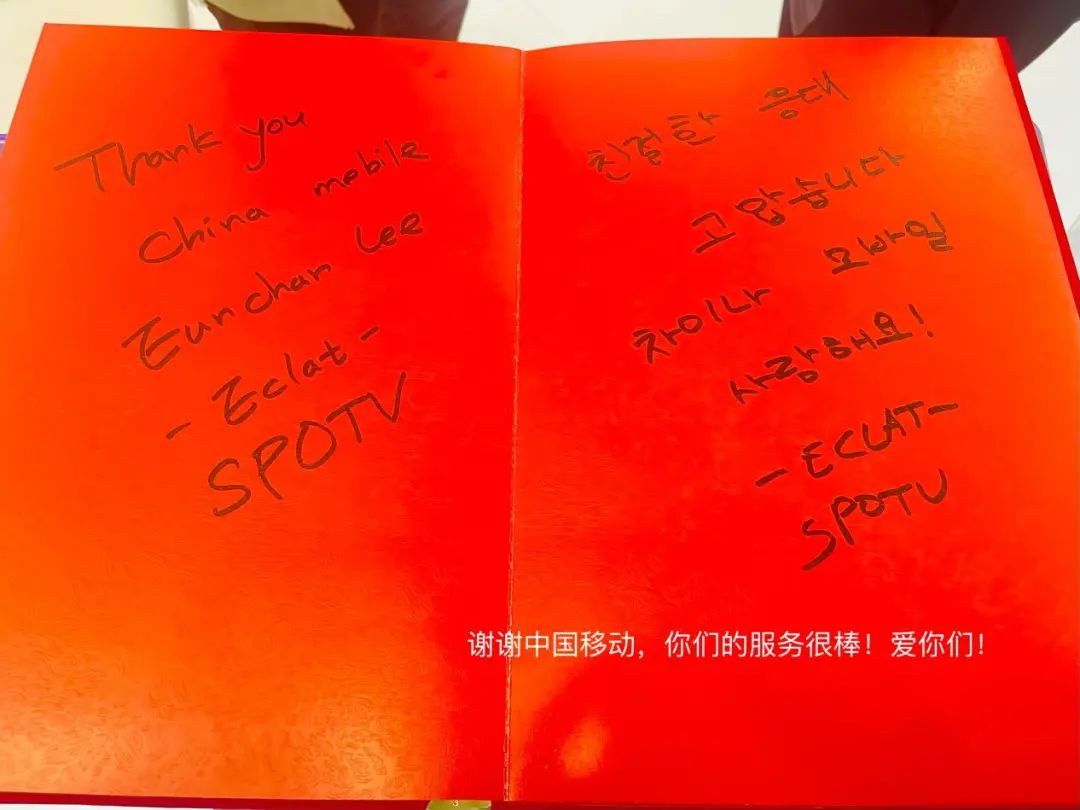 Thank you
China mobile
Eunchan Lee
- Eclat -
SPOTV
친절한 응대
고맙습니다
차이나 모바일
사랑해요!
- ECLAT -
SPOTV
谢谢中国移动，你们的服务很棒！爱你们！
3